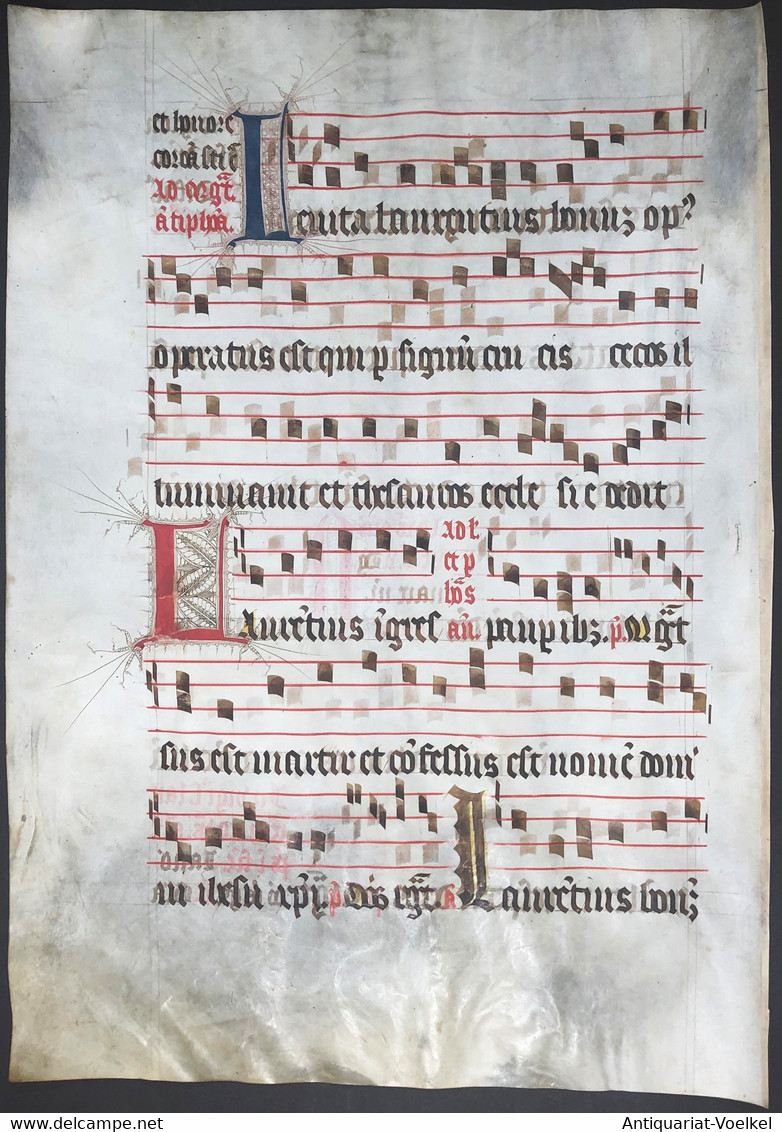 et honore
coroasti e
Ad mgt
atiphoa.
Leuita laurentius bonuz op
operatus est qui p signu cru cis cecos il
luminauit et thesauros eccle sie dedit
Ad l.
et p
hos
Lauretius igres an. paup ibz. p. Mgt
sus est martir et cofessus est nome domi
ni ihesu xpi. p Ds regt R Lauretius bonz
Antiquariat-Voelkel